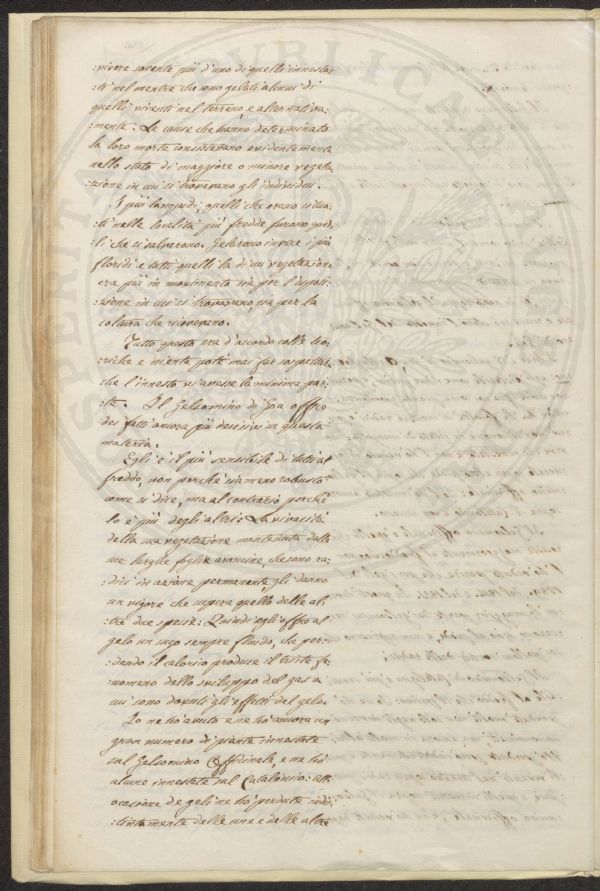 :vivere sovente più d'uno di quelli innesta:
:ti nel mentre che sono gelati alcuni di
quelli viventi nel terreno, e alternativa:
:mente. Le cause che hanno determinato
la loro morte consistevano evidentemente
nello stato di maggiore o minore vegeta:
:zione in cui si trovavano gli individui.
I più languidi, quelli che erano situa:
:ti nelle località più fredde furono quel:
:li che si salvarono. Gelarono invece i più
floridi e tutti quelli la di cui vegetazione
era più in movimento sia per l'esposi:
:zione in cui si trovavano, sia per la
coltura che ricevevano.
Tutto questo era d'accordo colle teo:
:riche e niente potè mai far sospettare
che l'innesto vi avesse la minima par:
:te. Il Gelsomino di Goa offre
dei fatti ancora più decisivi in questa
materia.
Egli è il più sensibile di tutti al
freddo, non perchè sia meno robusto
come si dice, ma al contrario perchè
lo è più degli altri: La vivacità
della sua vegetazione mantenuta dalle
sue larghe foglie, che sono ra:
:dici in azione permanente, gli danno
un vigore che supera quello delle al:
:tre due specie: Quindi egli offre al
gelo un sugo sempre fluido, che per:
:dendo il calorico produce il triste fe:
:nomeno dello sviluppo del gas a
cui sono dovuti gli effetti del gelo.
Io ne ho avuto e ne ho ancora un
gran numero di piante innestate
sul Gelsomino Officinale, e ne ho
alcune innestate sul Catalonio: all'
occasione de geli ne ho perdute indi:
:stintamente delle une e delle altre